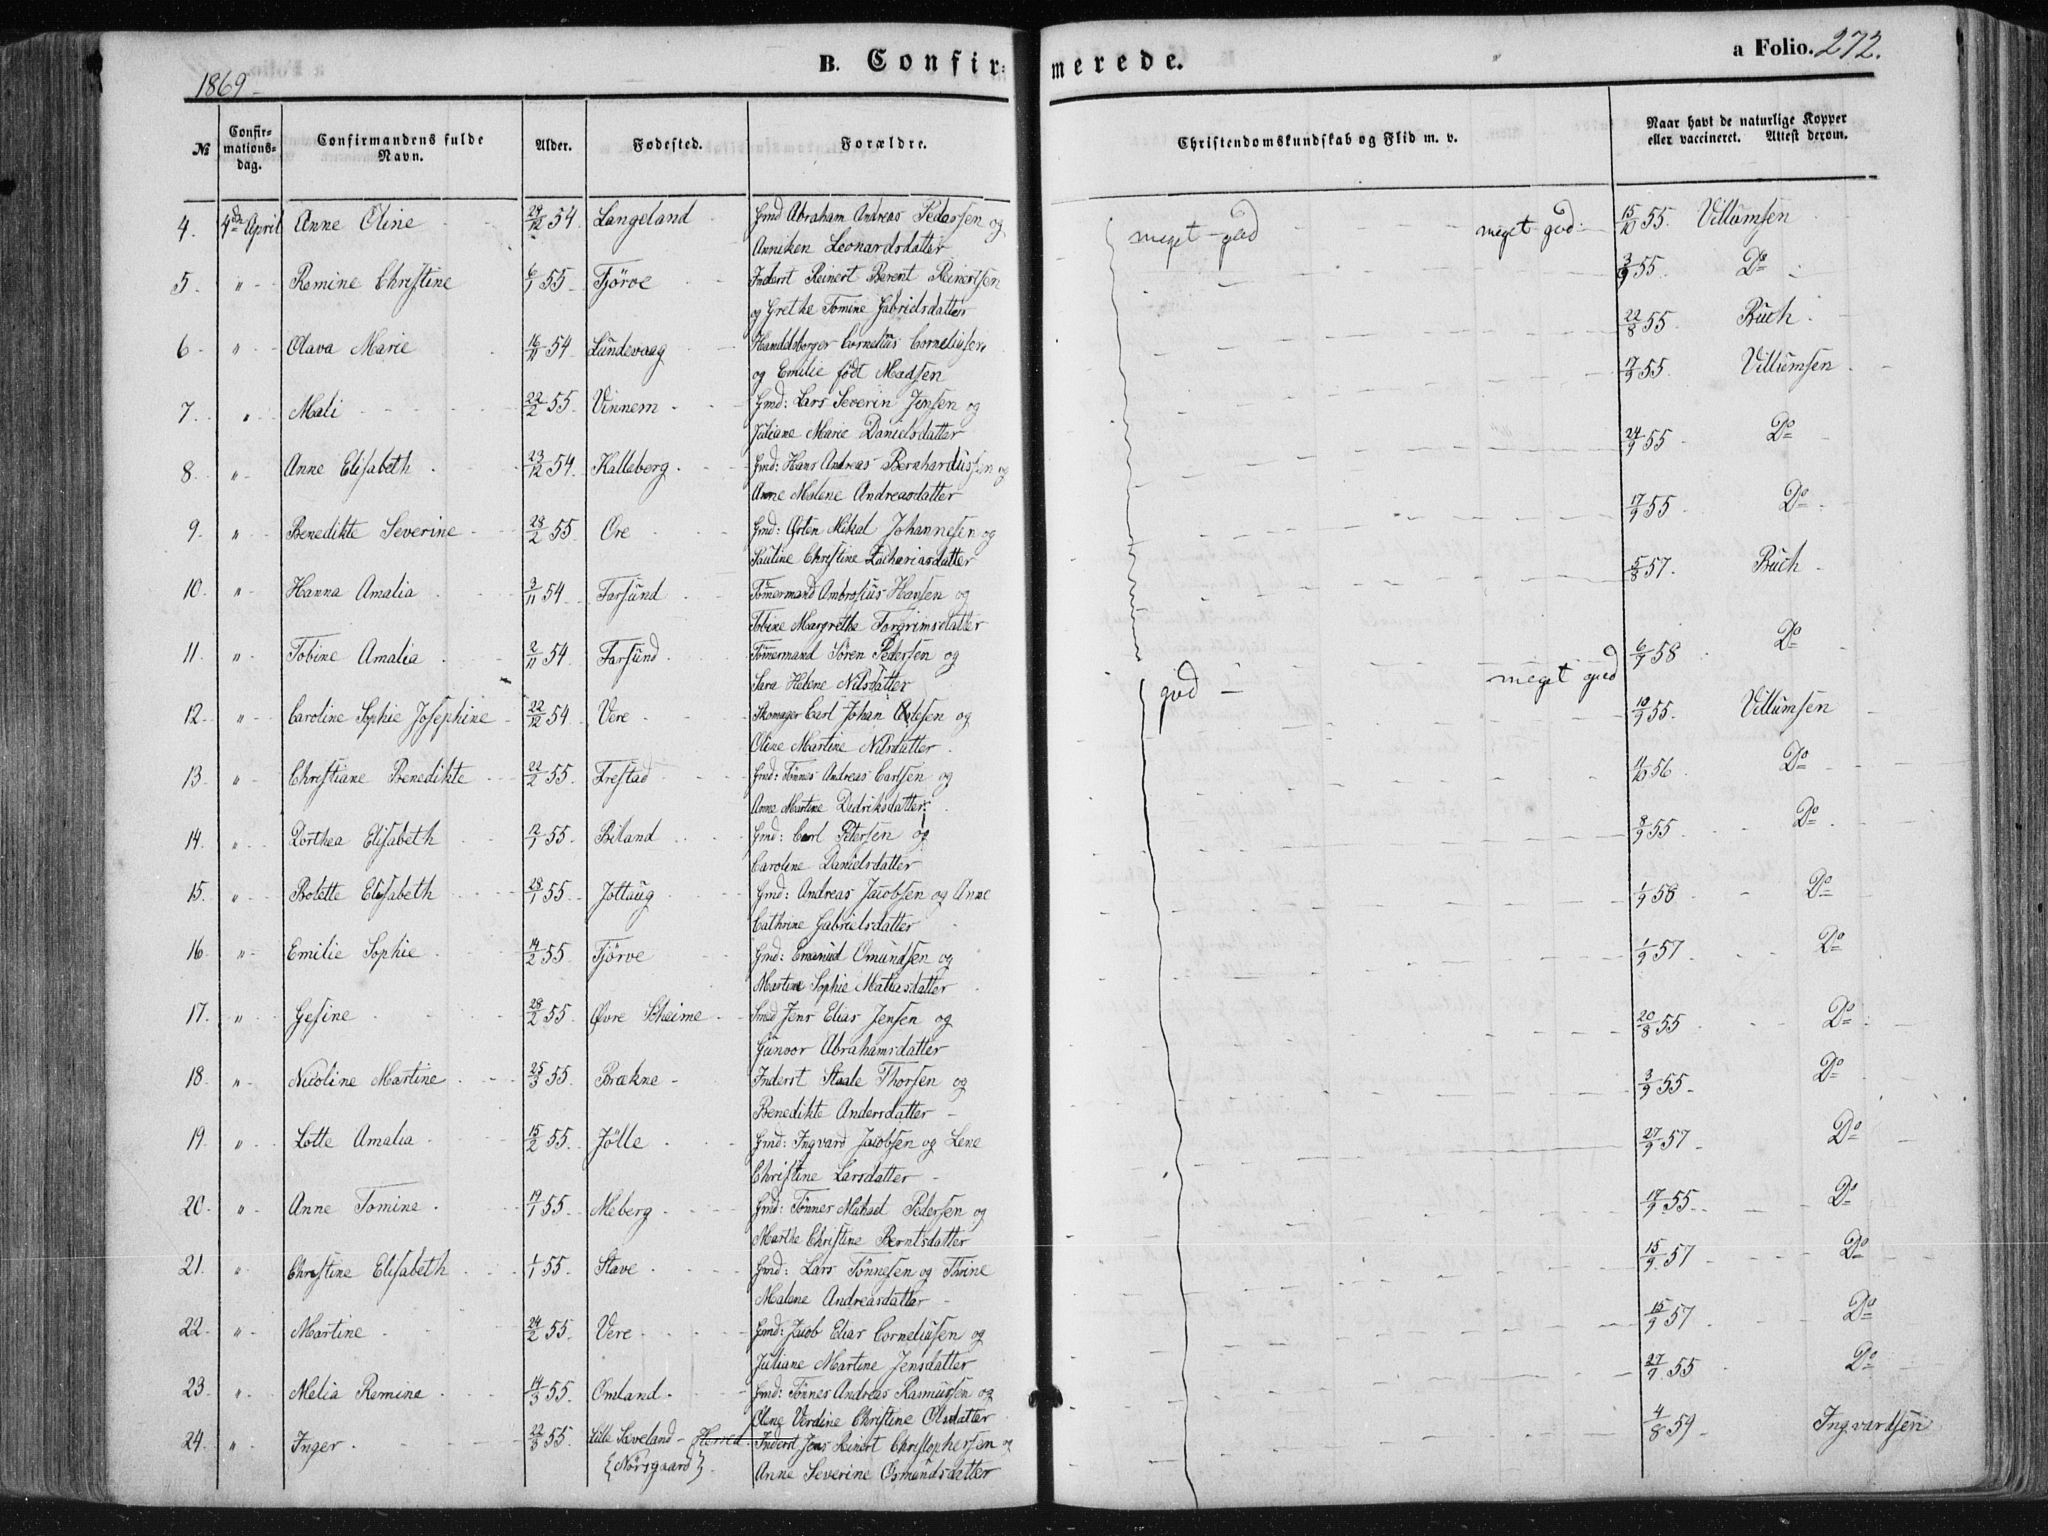 1869
B. Confir-
merede.
a Folio. 272.
№ Confirmationsdag. Confirmandens fulde Navn. Alder. Fødested. Forældre.
Christendomskundskab og Flid m. v. Naar havt de naturlige Kopper eller vaccineret. Attest derom.
4. 4de April Anne Oline 29/12 54 Langeland Gmd Abraham Andreas Pedersen og meget god meget god 15/10 55. Villumsen
Anniken Leonardsdatter
5. " Romine Christine 6/1 55 Fjörve Inderst Reinert Berent Reinertsen 3/9 55. Do
og Grethe Tomine Gabrielsdatter
6 " Olava Marie 16/11 54 Lundevaag Handelsborger Cornelius Corneliusen 22/8 55 Buch
og Emilie født Madsen
7. " Mali 22/2 55 Vinnem Gmd: Lars Severin Jensen og 17/9 55 Villumsen
Juliane Marie Danielsdatter
8. " Anne Elisabeth 23/12 54. Kalleberg Gmd: Hans Andreas Bernhardussen og 24/9 55 Do
Anne Malene Andreasdatter
9. " Benedikte Severine 28/2 55 Ore Gmd: Østen Mikal Johannesen og 17/9 55 Do
Pauline Christine Zachariasdatter
10. " Hanna Amalia 3/11 54 Farsund Tømermand Ambrosius Hansen og 5/8 57. Buch
Tobine Margrethe Torgrimsdatter
11. " Tobine Amalia 2/11 54 Farsund Tømermand Sören Pedersen og god meget god 6/9 58 Do
Sara Helene Nilsdatter
12. " Caroline Sophie Josephine 22/12 54 Vere Skomager Carl Johan Olesen og 10/9 55. Villumsen
Oline Martine Nilsdatter
13. " Christiane Benedikte 22/2 55 Frestad Gmd: Tönnes Andreas Carlsen og 11/10 56 Do
Anne Martine Didriksdatter
14. " Dorthea Elisabeth 12/1 55. Biland Gmd: Carl Petersen og 8/9 55 Do
Caroline Danielsdatter
15. " Bolette Elisabeth 28/1 55 Jöllaug Gmd: Andreas Jacobsen og Anne 1/9 58 Do
Cathrine Gabrielsdatter
16. " Emilie Sophie 14/2 55 Fjörve Gmd: Emanuel Omundsen og 1/9 57 Do
Martine Sophie Mathiasdatter
17. " Gesine 28/2 55. Øvre Skeime Smed Jens Elias Jensen og 20/8 55 Do
Gunvor Abrahamsdatter
18. " Nicoline Martine 25/3 55. Brækne Inderst Staale Thorsen og 3/9 55 Do
Benedikte Andersdatter
19. " Lotte Amalia 15/2 55. Jölle Gmd: Ingvard Jacobsen og Lene 27/9 57 Do
Christine Larsdatter
20. " Anne Tomine 19/1 55. Meberg Gmd: Tönnes Mikael Pedersen og 17/9 55 Do
Marthe Christine Berntsdatter
21. " Christine Elisabeth 1/1 55. Stave Gmd: Lars Tönnesen og Thrine 15/9 57 Do
Malene Andreasdatter
22. " Martine 24/2 55. Vere Gmd: Jacob Elias Corneliusen og 15/9 57 Do
Juliane Martine Jensdatter
23. " Melia Romine 14/3 55. Omland Gmd: Tönnes Andreas Rasmussen og 27/9 55 Do
Oline Verdine Christine Olsdatter
24. " Inger 22/3 55. Lille Sæveland - Herred Inderst Jens Reinert Christophersen og 4/8 59 Ingvardsen
{Nörsgaard}. Anne Severine Osmundsdatter